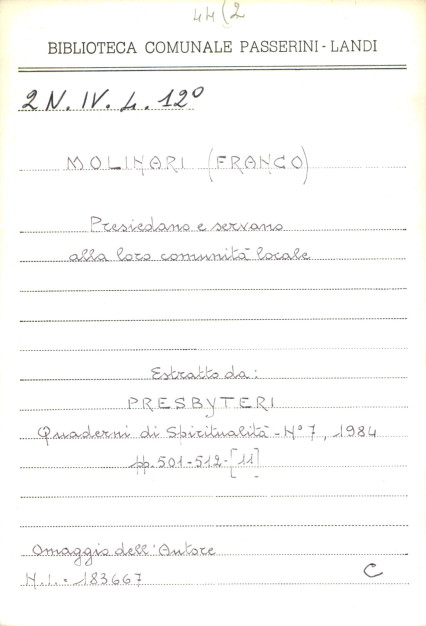 44(2
BIBLIOTECA COMUNALE PASSERINI - LANDI
2N. IV. 4. 12°
MOLINARI (FRANCO)
Presiedano e servano
alla loro comunità locale
Estratto da:
PRESBYTERI
Quaderni di Spiritualità - N° 7, 1984
pp. 501-512-[11]
Omaggio dell'Autore
N.I.: 183667
C